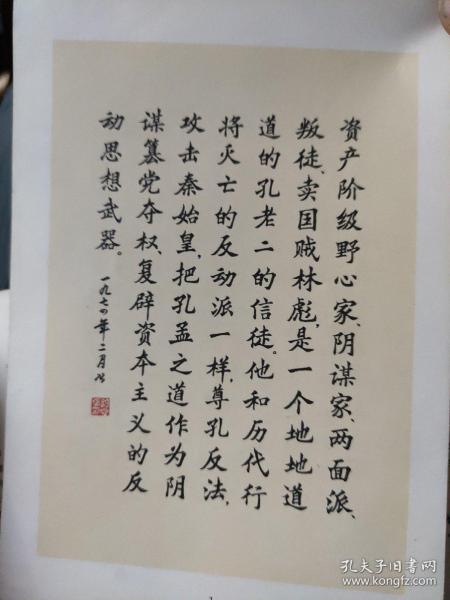 资产阶级野心家、阴谋家、两面派、
叛徒、卖国贼林彪，是一个地地道
道的孔老二的信徒。他和历代行
将灭亡的反动派一样，尊孔反法，
攻击秦始皇，把孔孟之道作为阴
谋篡党夺权、复辟资本主义的反
动思想武器。
一九七四年二月
孔夫子旧书网
www.kongfz.com